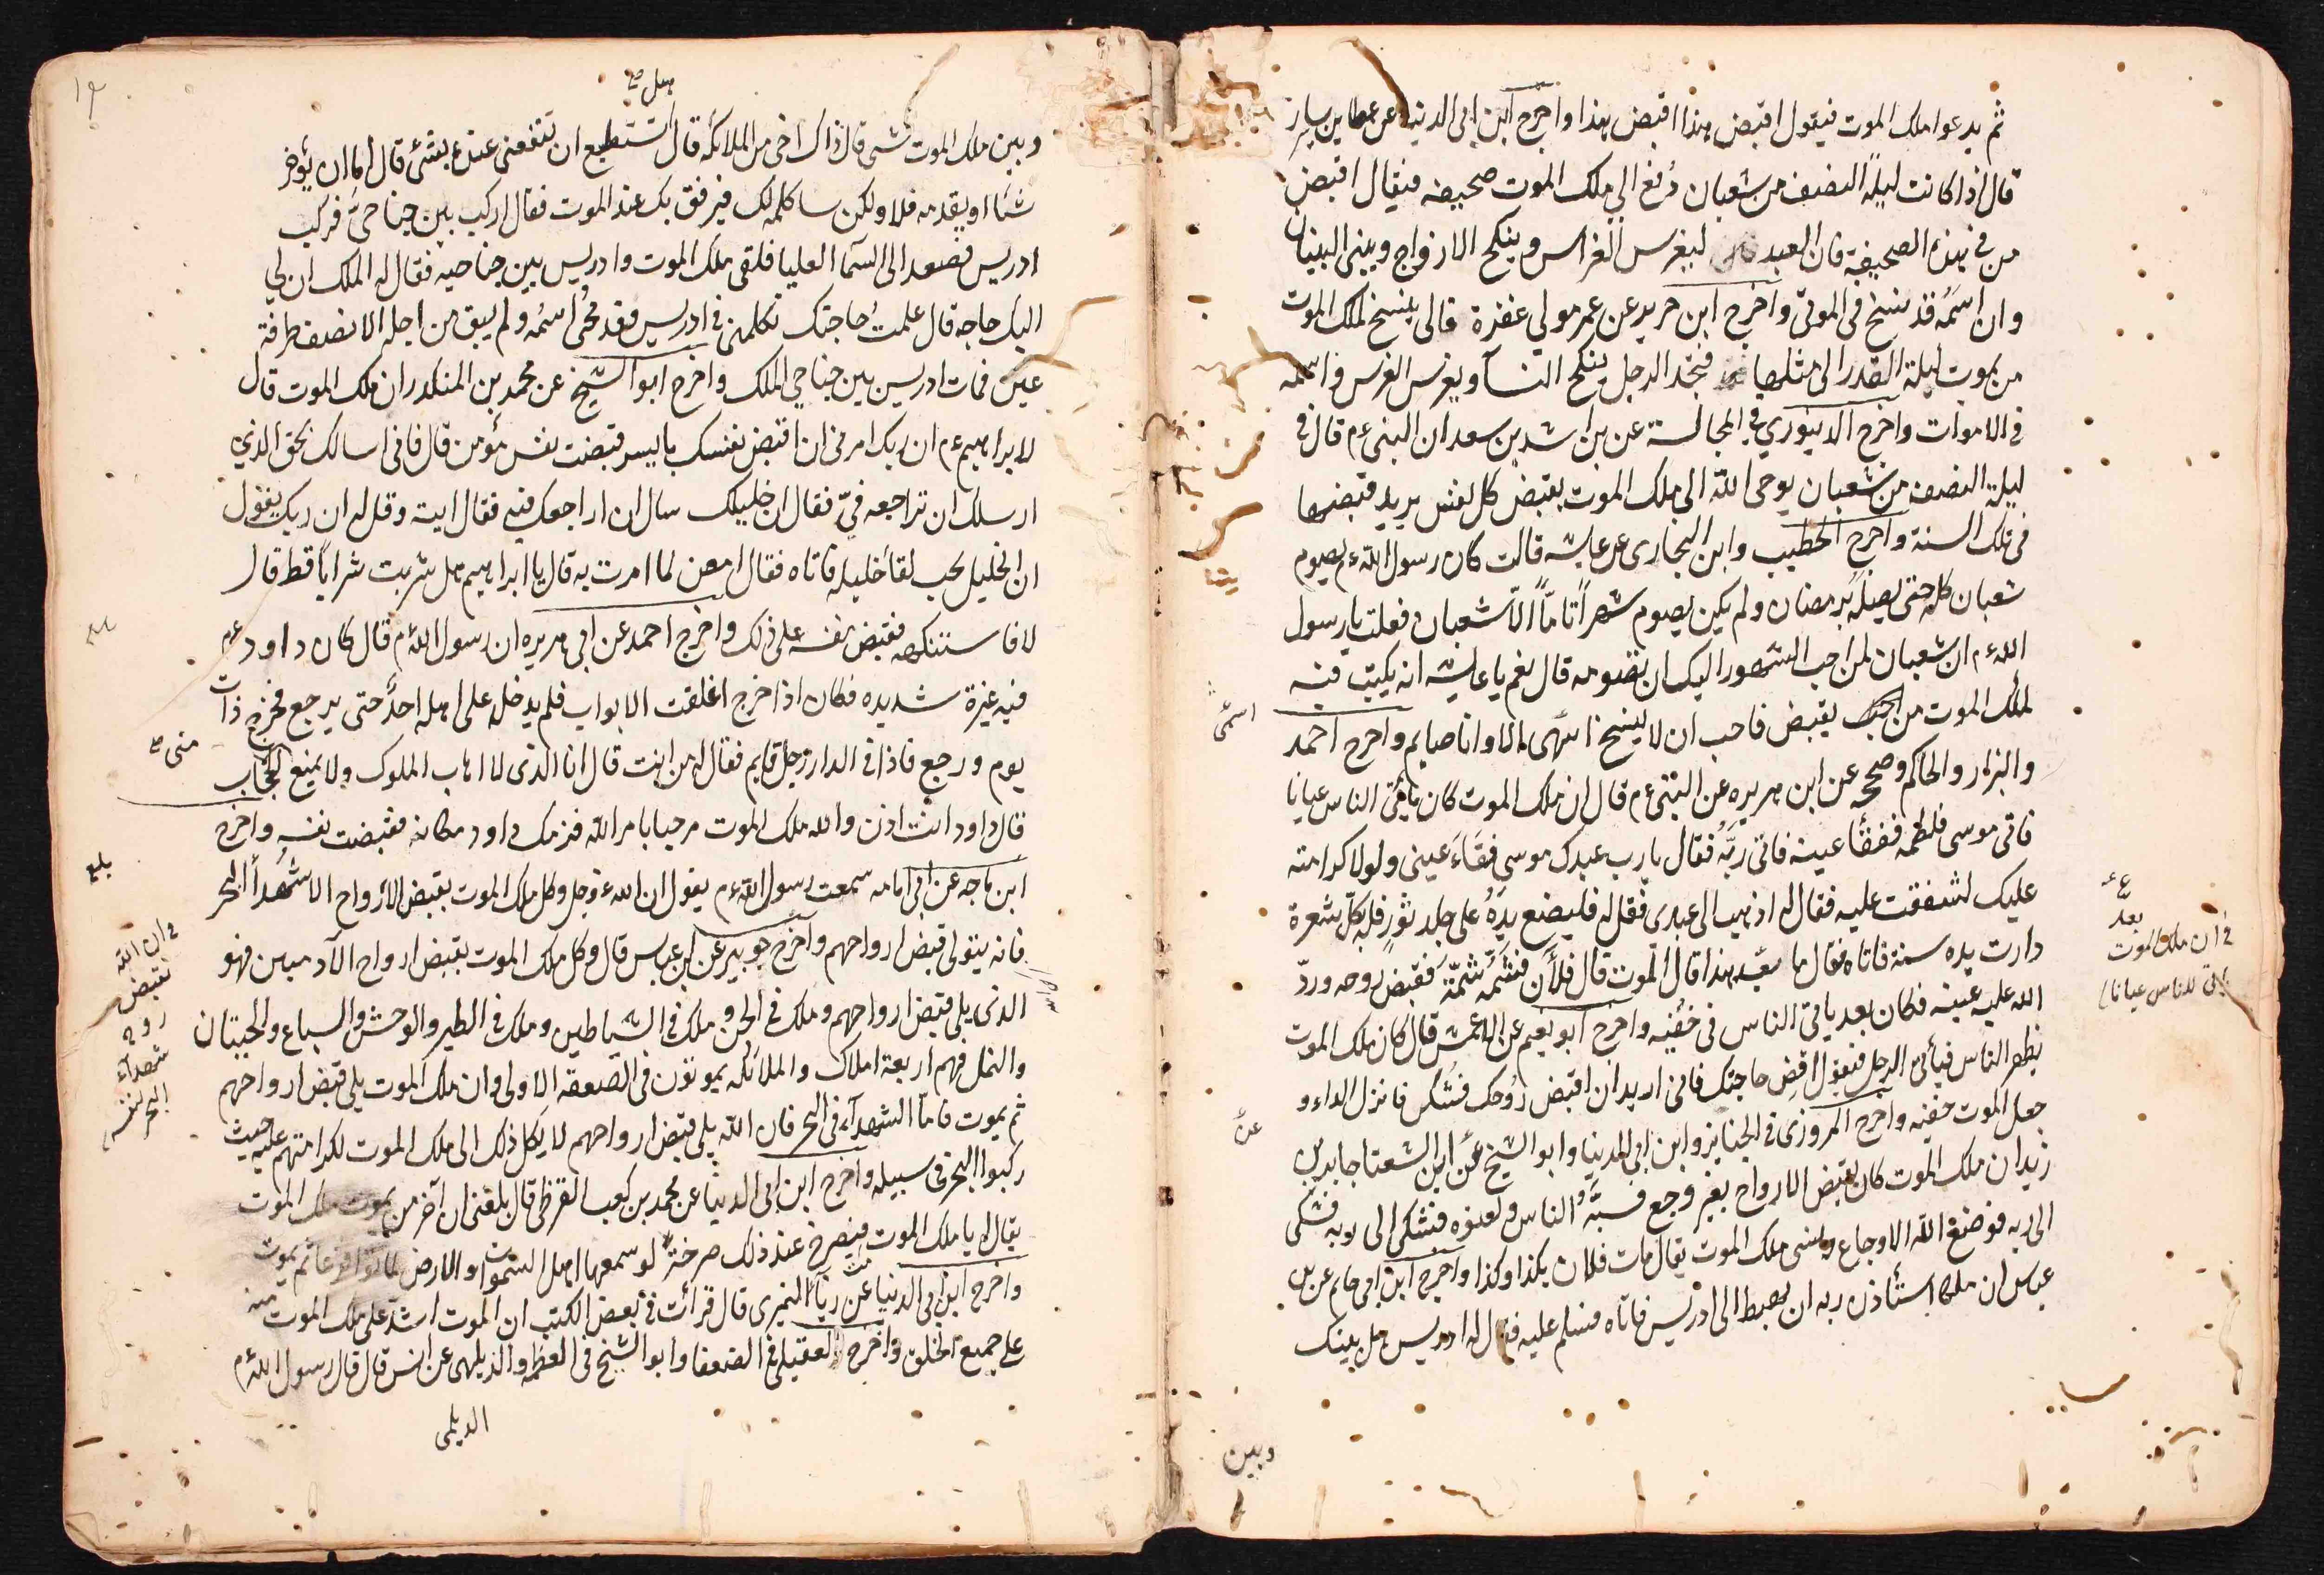 ثم يدعوا ملك الموت فيقول اقبض هذا اقبض هذا واخرج ابن ابي الدنيا عن عطا بن يسار
قال اذا كانت ليلة النصف من شعبان دُفع الي ملك الموت صحيفه فيقال اقبض
من في هذه الصحيفة فان العبد ليغرس الغراس وينكح الازواج ويبنى البنيان
وان اسمَه قد نسخ فى الموتى واخرج ابن جرير عن عمر مولي غفرة قال ينسخ لملك الموت
من يموت ليلة القدر الى مثلها فتجد الرجل ينكح النسآ ويغرس الغرس واسمه
فى الاموات واخرج الدينوري في المجالسة عن راشد بن سعد ان النبى ءم قال فى
ليلة النصف من شعبان يوحى اللّه الى ملك الموت بقبض كل نفس يريد قبضها
فى تلك السنة واخرج الخطيب وابن النجارى عن عايشه قالت كان رسول اللّه ءم يصوم
شعبان كله حتى يصلَه برمضان ولم يكن يصوم شهراً تامّاً الاّ شعبان فقلت يا رسول
اللّه ءم ان شعبان لمن احب الشهور اليك ان تصومه قال نعم يا عايشه انه يكتب فيه
لملك الموت من يقبض فاحب ان لا ينسخ اسمى الا وانا صايم واخرج احمد
والبزار والحاكم وصححه عن ابى هريره عن النبىّ ءم قال ان ملك الموت كان يأتى الناس عيانا
فاتى موسى فلطمه ففقأ عينه فاتى ربَّهُ فقال يا رب عبدك موسى فقَاءَ عينى ولولا كرامته
عليك لشققت عليه فقال له اذهب الى عبدى فقل له فليضع يدَهُ على جلد ثورٍ فله بكلّ شعرة
دارت يده سنة فاتاه فقال ما بعد هذا قال الموت قال فالأن فشمَّه شمّةً فقبض روحه وردّ
اللّه عليه عينه فكان بعد ياتى الناس فى خفيه واخرج ابو نعيم عن الاعمش قال كان ملك الموت
يظهر للناس فيأتى الرجل فيقول اقضِ حاجتك فانى اريد ان اقبض رُوحَك فشكى فانزل الداء و
جعل الموت خفيه واخرج المروزى فى الجنايز وابن ابي الدنيا وابو الشيخ عن ابى الشعثا جابر بن
زيد ان ملك الموت كان يقبض الارواح بغير وجع فسبَّهُ الناس ولعنوه فشكى الى ربه فشكى
الى ربه فوضع اللّه الاوجاع ونسى ملك الموت يقال مات فلان بكذا وكذا واخرج ابن ابى حاتم عن ابن
عباس ان ملكا استأذن ربه ان يهبط الى ادريس فاتاه فسلم عليه فقال له ادريس هل بينك
وبين
اسمى
بعد
فى ان ملك الموت
يأتى للناس عيانا
عن
١٩
هل صح
وبين ملك الموت شى قال ذاك اخى من الملائكة قال استطيع ان تنفعنى عنده بشئ قال اما ان يؤخر
شئا او يقدمه فلا ولكن ساكلمه لك فيرفق بك عند الموت فقال اركب بين جناحىَّ فركب
ادريس فصعد الى السمآ العليا فلقى ملك الموت وادريس بين جناحيه فقال له الملك ان لي
اليك حاجه قال علمتُ حاجتك تكلمنى فى ادريس وقد مُحى اسمُه ولم يبق من اجله الا نصف طرفة
عين فمات ادريس بين جناحي الملك واخرج ابو الشيخ عن محمد بن المنكدر ان ملك الموت قال
لابراهيم ءم ان ربك امرنى ان اقبض نفسك بايسر قبضت نفس مؤمن قال فانى اسالك بحق الذي
ارسلك ان تراجعه فىّ فقال ان خليلك سال ان اراجعك فيه فقال ايته وقل له ان ربك يقول
ان الخليل يحب لقا خليله فاتاه فقال امعن لما امرت به قال يا ابراهيم هل شربت شراباً قط قال
لا فاستنكهه فقبض نفسه على ذلك واخرج احمد عن ابى هريره ان رسول اللّه ءم قال كان داود ءم
فيه غيرة شديده فكان اذا خرج اغلقت الابواب فلم يدخل على اهله احدٌ حتى يرجع فخرج ذات
يوم ورجع فاذا فى الدار رجل قايم فقال له من انت قال انا الذى لا اهاب الملوك ولا يمنع الحجّاب
قال داود انت اذن واللّه ملك الموت مرحبا بامر اللّه فزمل داود مكانه فقبضت نفسه واخرج
ابن ماجه عن ابى امامه سمعت رسول اللّه ءم يقول ان اللّه عز وجل وكل ملك الموت بقبض الأرواح الا شهداء البحر
فانه يتولى قبض ارواحهم واخرج جويبر عن ابن عباس قال وكل ملك الموت بقبض ارواح الآدميين فهو
الذى يلى قبض ارواحهم وملك فى الجن وملك فى الشياطين وملك فى الطير والوحش والسباع والحيتان
والنمل فهم اربعة املاك والملائكه يموتون فى الصعقه الاولى وان ملك الموت يلى قبض ارواحهم
ثم يموت فامآ الشهدآء فى البحر فان اللّه يلى قبض ارواحهم لا يكل ذلك الى ملك الموت لكرامتهم عليه حيث
ركبوا البحر فى سبيله واخرج ابن ابى الدنيا عن محمد بن كعب القرظى قال بلغنى ان آخر من يموت ملك الموت
يقال له يا ملك الموت فيصرخ عند ذلك صرخةً لو سمعها اهل السموات والارض لماتوا فزعا ثم يموت
واخرج ابن ابى الدنيا عن زيآد النميرى قال قرأت فى بعض الكتب ان الموت اشدّ على ملك الموت منه
على جميع الخلق واخرج العقيلى فى الضعفا وابو الشيخ فى العظمه والديلمى عن انس قال قال رسول اللّه ءم
الديلمى
منى صح
بلغ
فى ان اللّه
تقبض
روح
شهدآء
البحر بنفسه